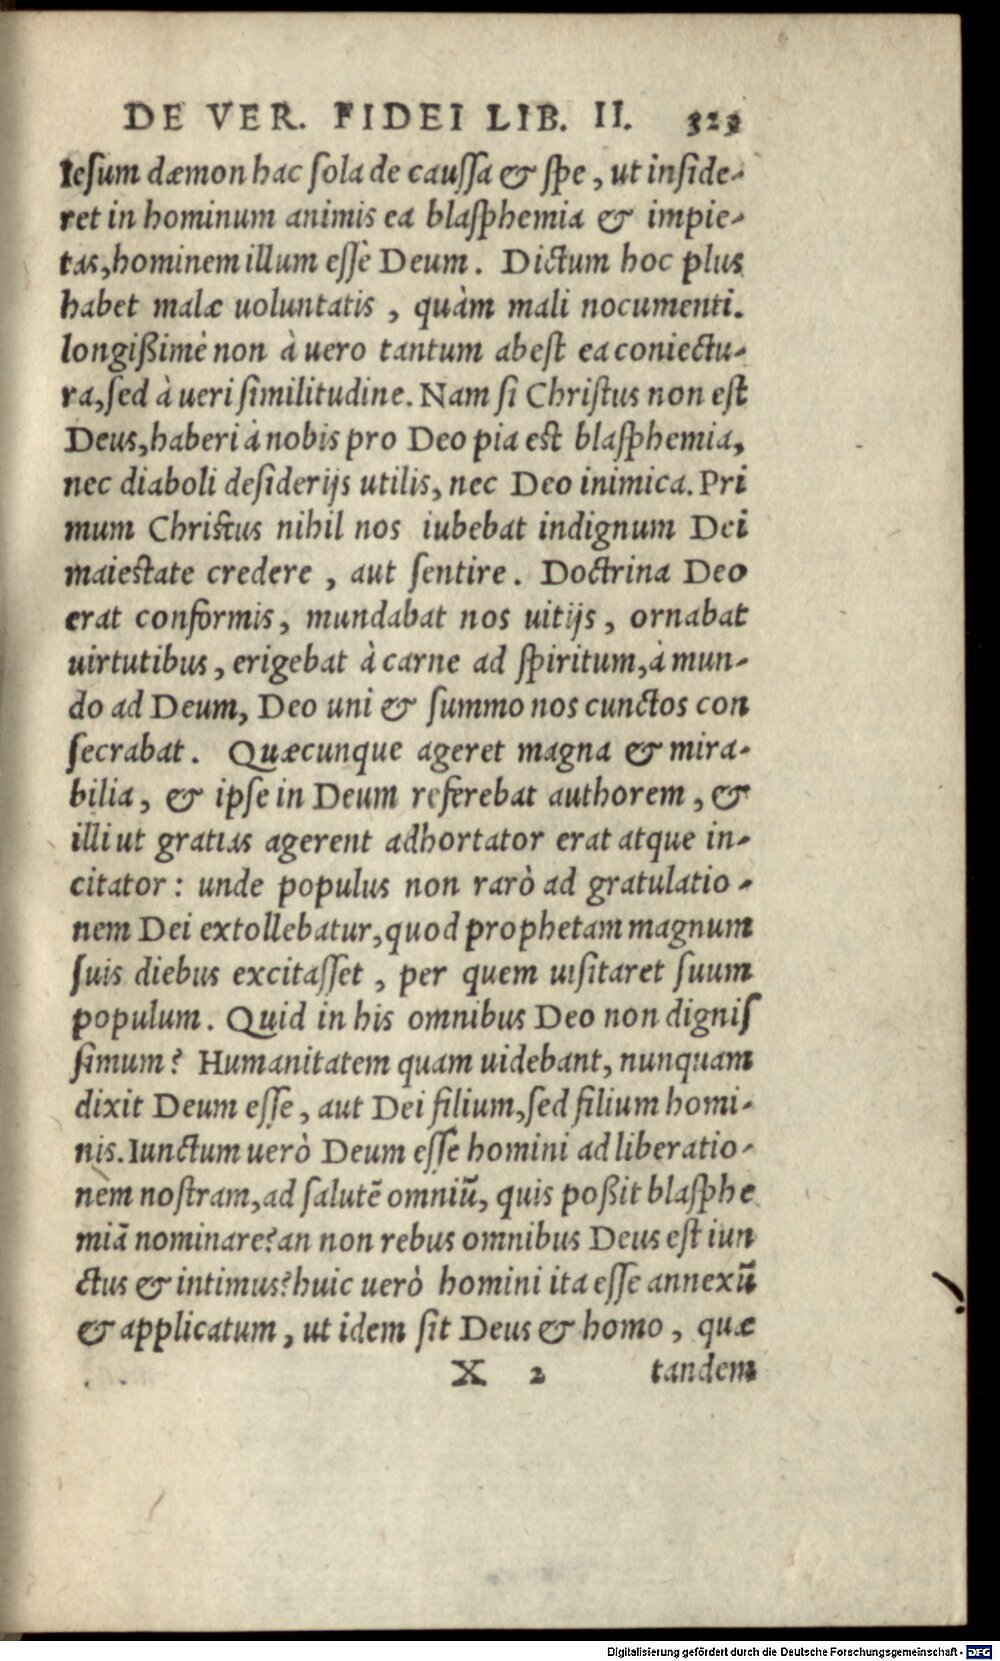 DE VER. FIDEI LIB. II. 323
Iesum dæmon hac sola de caussa & spe, ut inside-
ret in hominum animis ea blasphemia & impie-
tas, hominem illum esse Deum. Dictum hoc plus
habet malæ uoluntatis, quàm mali nocumenti.
longißimè non à uero tantum abest ea coniectu-
ra, sed à ueri similitudine. Nam si Christus non est
Deus, haberi à nobis pro Deo pia est blasphemia,
nec diaboli desiderijs utilis, nec Deo inimica. Pri
mum Christus nihil nos iubebat indignum Dei
maiestate credere, aut sentire. Doctrina Deo
erat conformis, mundabat nos uitijs, ornabat
uirtutibus, erigebat à carne ad spiritum, à mun-
do ad Deum, Deo uni & summo nos cunctos con
secrabat. Quæcunque ageret magna & mira-
bilia, & ipse in Deum referebat authorem, &
illi ut gratias agerent adhortator erat atque in-
citator: unde populus non rarò ad gratulatio-
nem Dei extollebatur, quod prophetam magnum
suis diebus excitasset, per quem uisitaret suum
populum. Quid in his omnibus Deo non dignis
simum? Humanitatem quam uidebant, nunquam
dixit Deum esse, aut Dei filium, sed filium homi-
nis. Iunctum uerò Deum esse homini ad liberatio-
nem nostram, ad salutē omniū, quis poßit blasphe
miā nominare? an non rebus omnibus Deus est iun
ctus & intimus? huic uerò homini ita esse annexū
& applicatum, ut idem sit Deus & homo, quæ
X 2 tandem
Digitalisierung gefördert durch die Deutsche Forschungsgemeinschaft - DFG